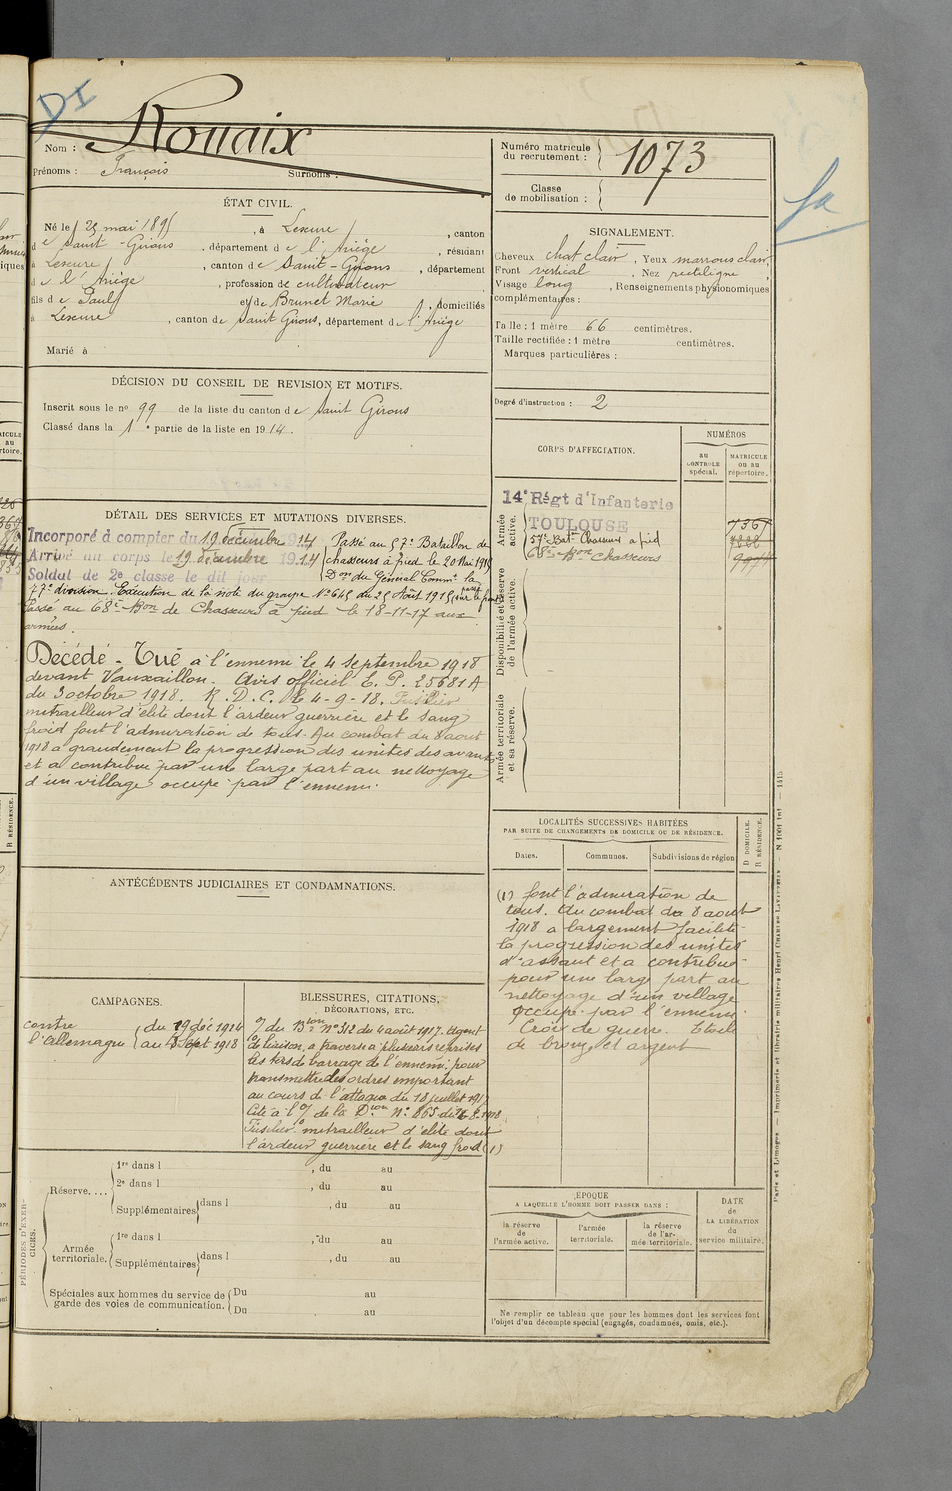 DI
Nom : Rouaix
Prénoms : François Surnoms :
ÉTAT CIVIL.
Né le 25 mai 1895, à Lescure, canton
de Saint-Girons, département de l'Ariège, résidant
à Lescure, canton de Saint-Girons, département
de l'Ariège, profession de cultivateur
fils de Paul et de Brunet Marie, domiciliés
à Lescure, canton de Saint Girons, département de l'Ariège
Marié à
DÉCISION DU CONSEIL DE REVISION ET MOTIFS.
Inscrit sous le no 99 de la liste du canton de Saint Girons
Classé dans la 1e partie de la liste en 1914.
DÉTAIL DES SERVICES ET MUTATIONS DIVERSES.
Incorporé à compter du 19 décembre 1914
Arrivé au corps le 19 décembre 1914
Soldat de 2e classe le dit jour
Passé au 57e Bataillon de
chasseurs à pied le 20 Mai 1915
Don du Général Commt la
77e division. Exécution de la note du groupe No 645 du 25 Août 1915
Passé au 68e Bon de Chasseurs à pied le 18-11-17 aux
armées.
Décédé - Tué à l'ennemi le 4 septembre 1918
devant Vauxaillon. Avis officiel E. P. 25681 A
du 3 octobre 1918. R. D. C. le 4-9-18. Fusilier
mitrailleur d'élite dont l'ardeur guerrière et le sang
froid font l'admiration de tous. Au combat du 8 aout
1918 a grandement la progression des unités des avants
et a contribué par une large part au nettoyage
d'un village occupé par l'ennemi.
ANTÉCÉDENTS JUDICIAIRES ET CONDAMNATIONS.
CAMPAGNES.
contre l'Allemagne
du 19 déc 1914
au 4 Sept 1918
BLESSURES, CITATIONS,
DÉCORATIONS, ETC.
O/ du Bton No 312 du 4 août 1917. Agent
de liaison, a traversé à plusieurs reprises
les tirs de barrage de l'ennemi pour
transmettre des ordres important
au cours de l'attaque du 18 juillet 1917
Cité à l'O/ de la Dion No 865 du 26-8-1918
Fusilier mitrailleur d'élite dont
l'ardeur guerrière et le sang froid (1)
PÉRIODES D'EXERCICES.
Réserve....
1re dans l , du au
2e dans l , du au
Supplémentaires dans l , du au
Armée territoriale.
1re dans l , du au
Supplémentaires dans l , du au
Spéciales aux hommes du service de garde des voies de communication.
Du au
Du au
Numéro matricule du recrutement : 1073
Classe de mobilisation :
SIGNALEMENT.
Cheveux chat clair, Yeux marrons clair,
Front vertical, Nez rectiligne,
Visage long, Renseignements physionomiques
complémentaires :
Taille : 1 mètre 66 centimètres.
Taille rectifiée : 1 mètre centimètres.
Marques particulières :
Degré d'instruction : 2
CORPS D'AFFECTATION.
NUMÉROS
au CONTROLE spécial.
MATRICULE ou au répertoire.
Armée active.
14e Régt d'Infanterie
TOULOUSE
57e Batn Chasseurs à pied
68e Bon Chasseurs
Disponibilité et réserve de l'armée active.
Armée territoriale et sa réserve.
LOCALITÉS SUCCESSIVES HABITÉES
PAR SUITE DE CHANGEMENTS DE DOMICILE OU DE RÉSIDENCE.
Dates. Communes. Subdivisions de région
D DOMICILE.
R RÉSIDENCE.
(1) font l'admiration de
tous. Au combat du 8 aout
1918 a largement facilité
la progression des unités
d'assaut et a contribué
pour une large part au
nettoyage d'un village
occupé par l'ennemi.
Croix de guerre. Etoile
de bronze et argent
ÉPOQUE
A LAQUELLE L'HOMME DOIT PASSER DANS :
la réserve de l'armée active.
l'armée territoriale.
la réserve de l'armée territoriale.
DATE de LA LIBÉRATION du service militaire.
Ne remplir ce tableau que pour les hommes dont les services font
l'objet d'un décompte spécial (engagés, condamnés, omis, etc.).